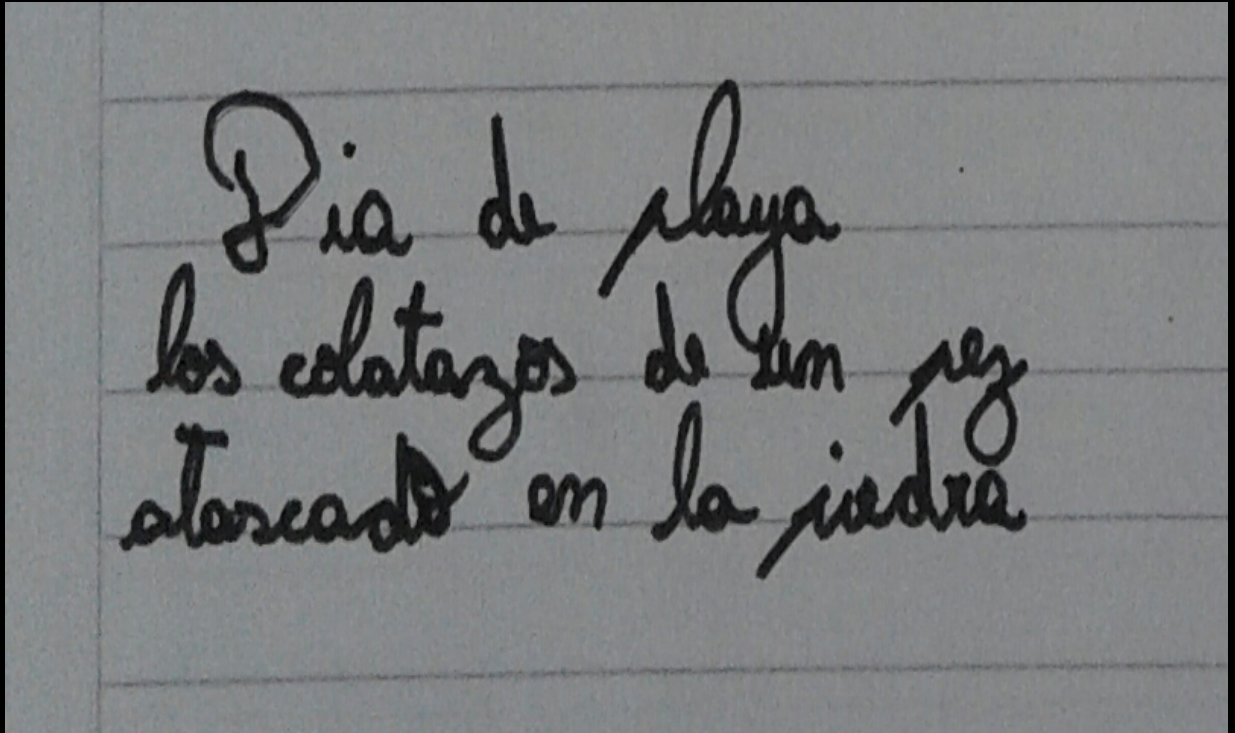 Dia de playa
los colatazos de un pez
atascado en la piedra